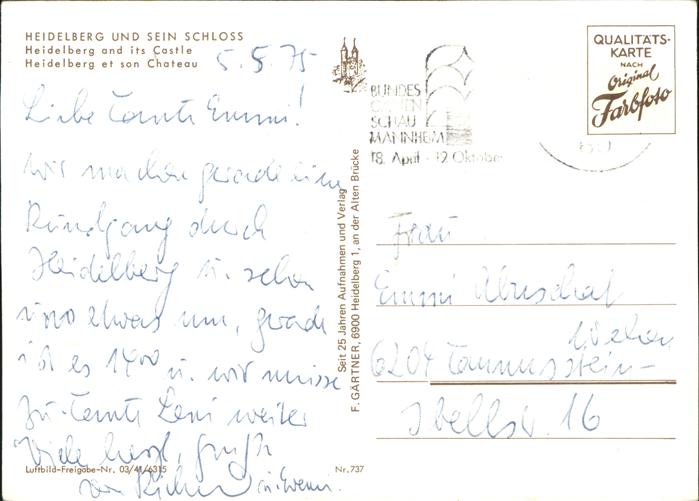 HEIDELBERG UND SEIN SCHLOSS
Heidelberg and its Castle
Heidelberg et son Chateau
5.5.75
Liebe Tante Emmi!
Wir machen gerade eine
Rundgang durch
Heidelberg u. sehen
uns etwas um, gerade
ist es 1400 u. wir müsse
zu Tante Leni weiter
Viele herzl. Grüße
von
Luftbild-Freigabe-Nr. 03/41/6315
Nr. 737
Seit 25 Jahren Aufnahmen und Verlag
F. GÄRTNER, 6900 Heidelberg 1, an der Alten Brücke
BUNDES
GARTEN
SCHAU
MANNHEIM
18. April - 12 Oktober
QUALITÄTS-
KARTE
NACH
Original
Farbfoto
Frau
Emmi
6204 Taunusstein-
16